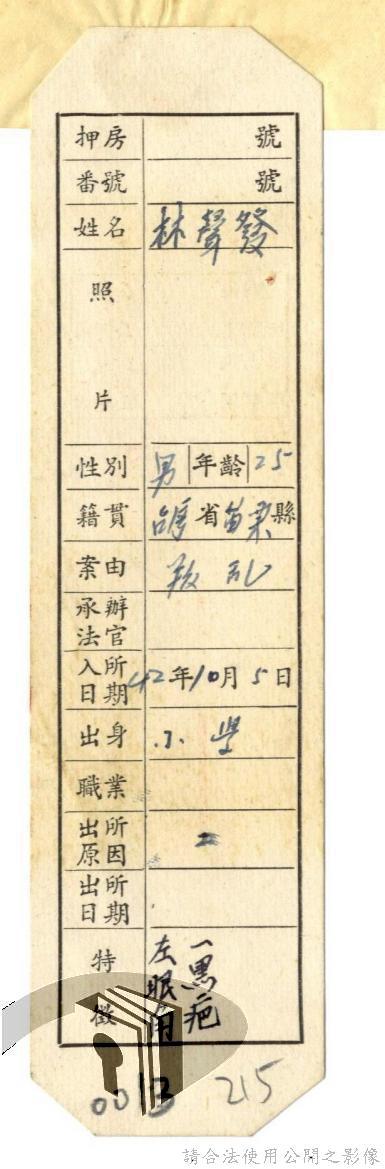 押房 號
番號 號
姓名 林聲發
照片
性別 男 年齡 25
籍貫 省苗栗縣
案由 叛乱
承辦法官
入所日期 42年10月5日
出身 小學
職業
出所原因
出所日期
特徵 左眼角一黑疤
0013 215
請合法使用公開之影像